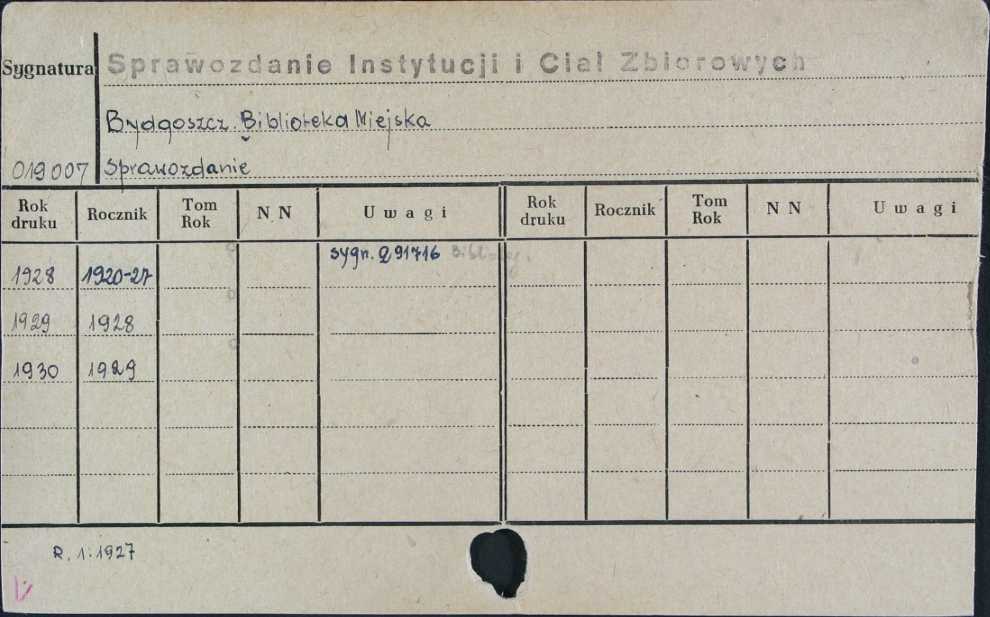 Sprawozdanie Instytucji i Ciał Zbiorowych
Sygnatura
Bydgoszcz. Biblioteka Miejska
019007 Sprawozdanie
Rok druku Rocznik Tom Rok NN Uwagi Rok druku Rocznik Tom Rok NN Uwagi
sygn. 291716
1928 1920-27
1929 1928
1930 1929
R. 1:1927